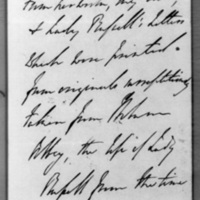 & Lady Russell's letters
which were printed
from originals
taken from Woburn
Abbey, the life of Lady
Russell from the time